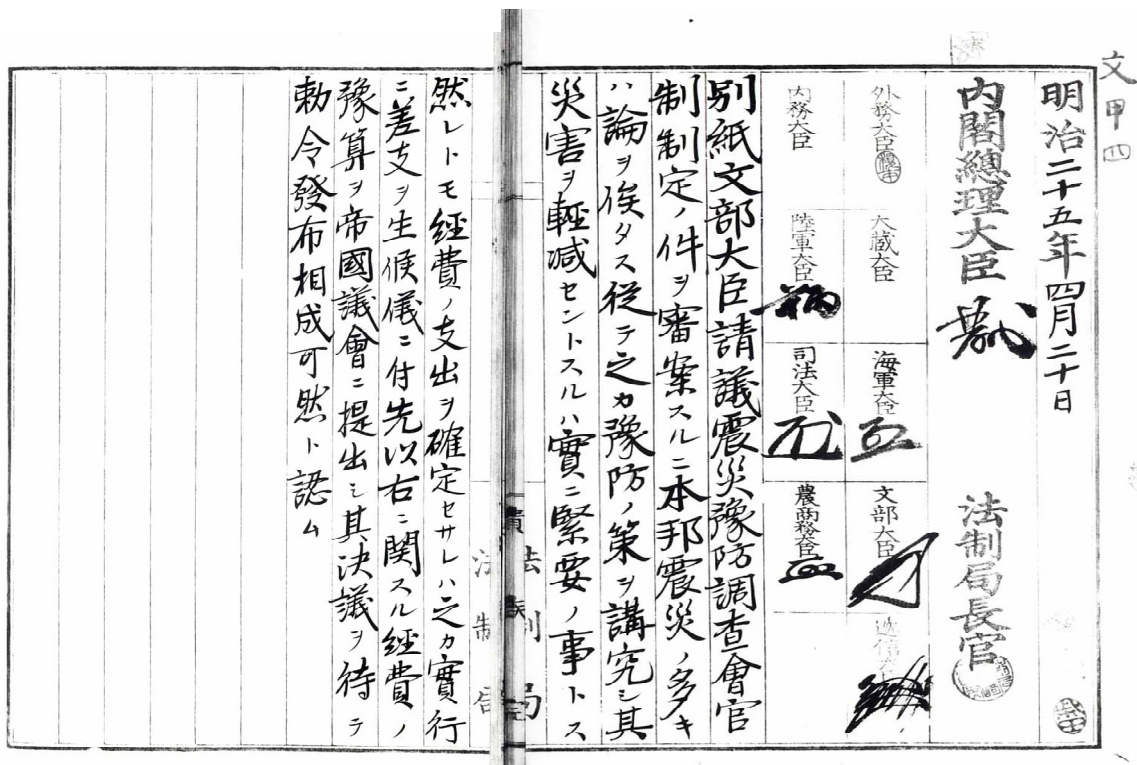 文甲四
明治二十五年四月二十日
内閣總理大臣
法制局長官
外務大臣
大蔵大臣
海軍大臣
文部大臣
逓信大臣
内務大臣
陸軍大臣
司法大臣
農商務大臣
別紙文部大臣請議震災豫防調查會官
制制定ノ件ヲ審案スルニ本邦震災ノ多キ
ハ論ヲ俟タス從テ之カ豫防ノ策ヲ講究シ其
災害ヲ輕減セントスルハ實ニ緊要ノ事トス
法制局
然レトモ經費ノ支出ヲ確定セサレハ之カ實行
ニ差支ヲ生候儀ニ付先以右ニ関スル經費ノ
豫算ヲ帝國議會ニ提出シ其決議ヲ待テ
勅令發布相成可然ト認ム